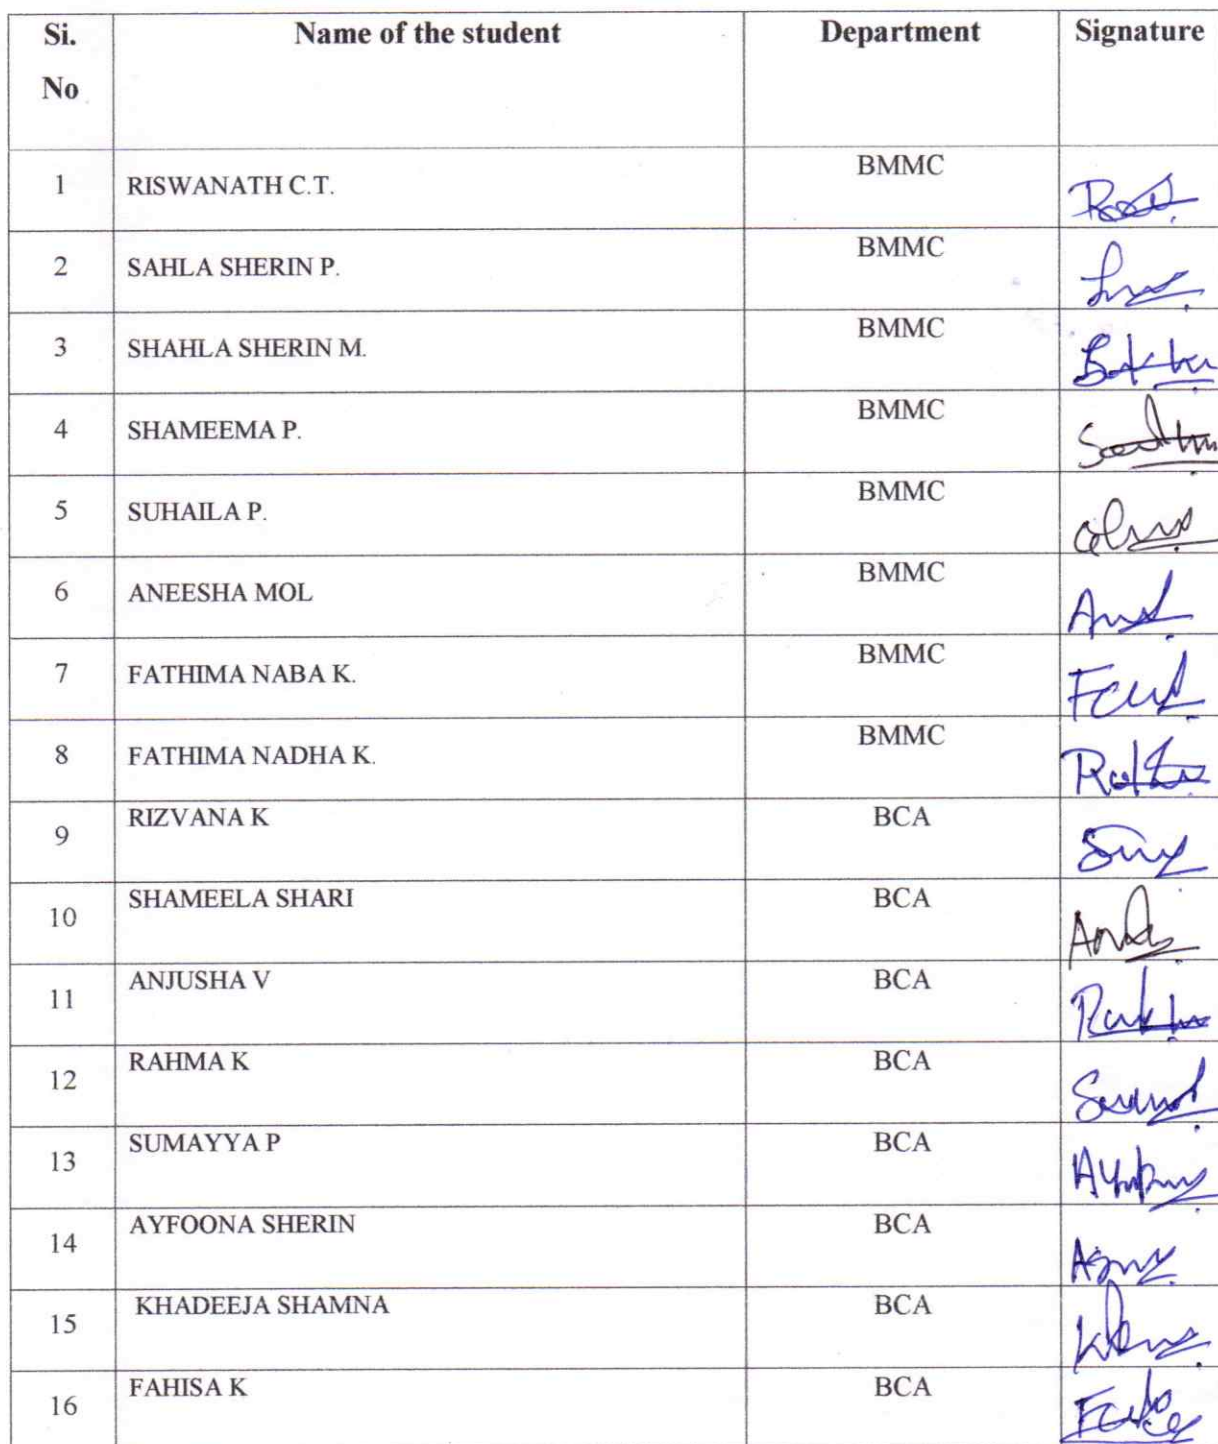 Si. No Name of the student Department Signature
1 RISWANATH C.T. BMMC
2 SAHLA SHERIN P. BMMC
3 SHAHLA SHERIN M. BMMC
4 SHAMEEMA P. BMMC
5 SUHAILA P. BMMC
6 ANEESHA MOL BMMC
7 FATHIMA NABA K. BMMC
8 FATHIMA NADHA K. BMMC
9 RIZVANA K BCA
10 SHAMEELA SHARI BCA
11 ANJUSHA V BCA
12 RAHMA K BCA
13 SUMAYYA P BCA
14 AYFOONA SHERIN BCA
15 KHADEEJA SHAMNA BCA
16 FAHISA K BCA